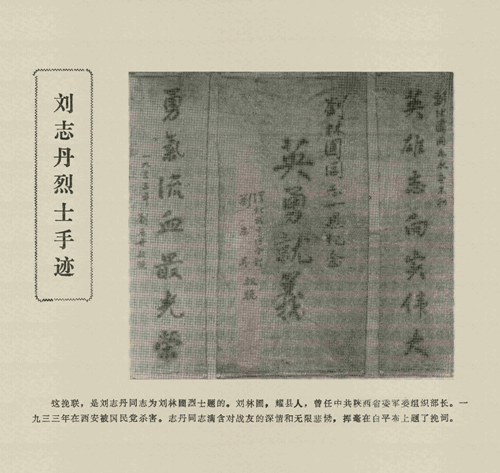 刘志丹烈士手迹
英雄志向实伟大
劉林圃同志千古紀念
英勇就義
劉志丹 敬輓
勇氣流血最光榮
这挽联，是刘志丹同志为刘林圃烈士题的。刘林圃，耀县人，曾任中共陕西省委军委组织部长。一
九三三年在西安被国民党杀害。志丹同志满含对战友的深情和无限悲恸，挥毫在白平布上题了挽词。